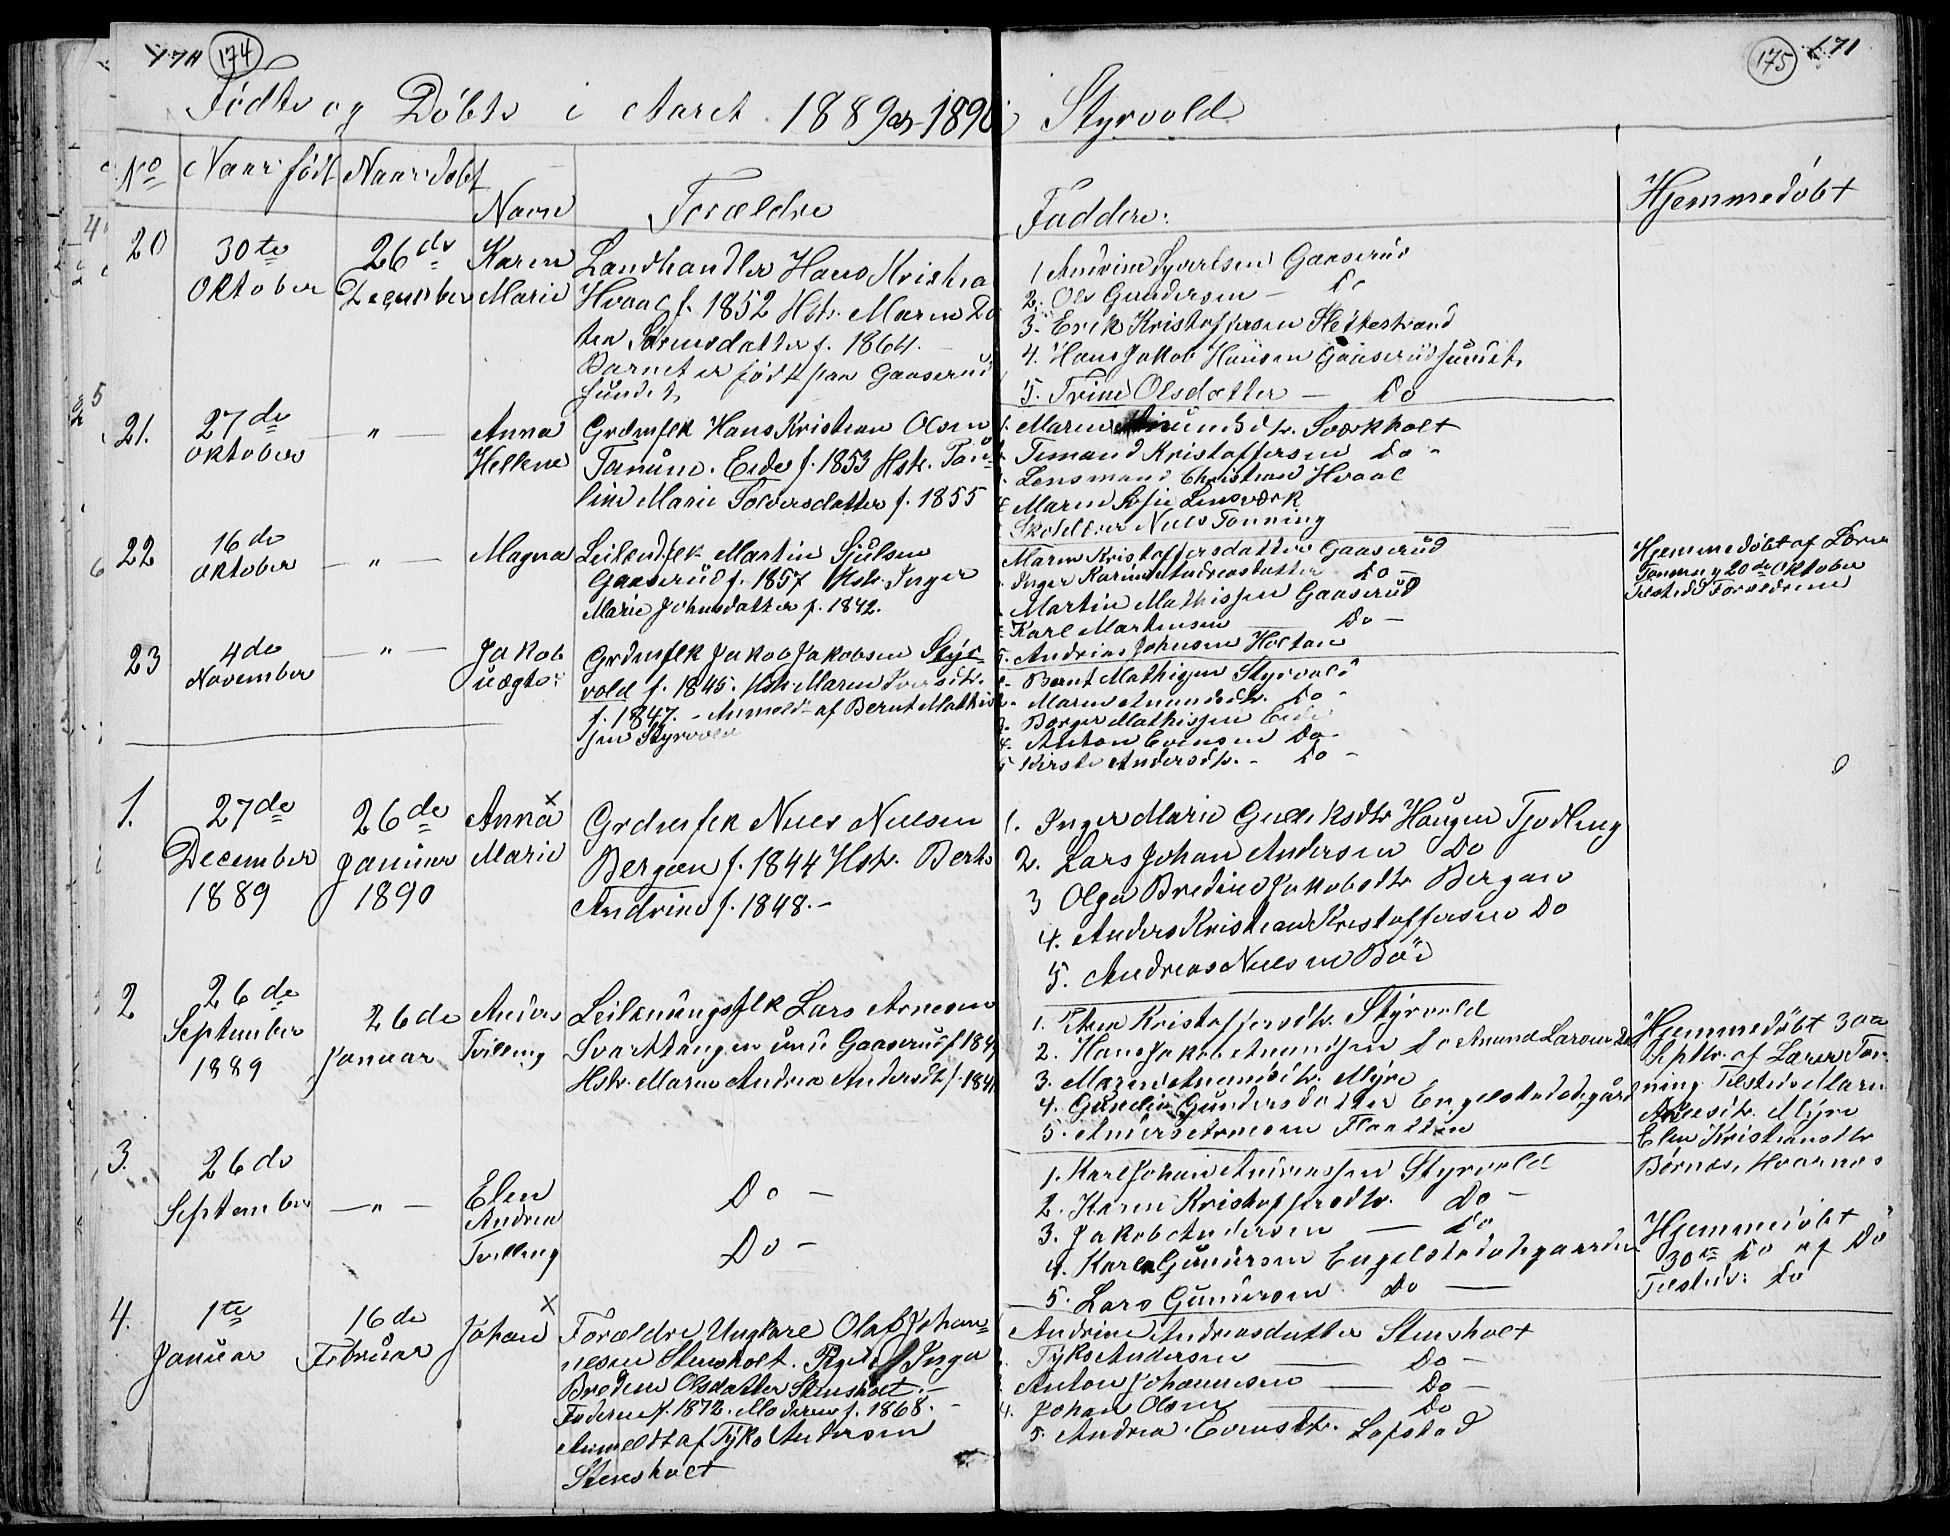 174 171
175
Fødte og Døbte i Aaret 1889 og 1890 i Styrvold
No Naar født Naar døbt Navn Forældre Faddere: Hjemmedøbt
20
30te Oktober
26de December
Karen Marie
Landhandler Hans Kristia
Hvaal f. 1852 Hstr. Maren
Sørensdatter f. 1864.
Barnet er født paa Gaaserud
Sundet
1 Andrine Syvertsen Gaaserud
2. Ole Gundersen — Do
3. Erik Kristoffersen Slettestrand
4. Hans Jakob Hansen Gaaserudsundet
5. Trine Olsdatter — Do
21.
27de Oktober
— " —
Anna Hellene
Grdmflk Hans Kristian Olsen
Tanum. Eide f. 1853 Hstr. Pau-
line Marie Solversdatter f. 1855
1. Maren Svarkholt
Temand Kristoffersen Do -
Lensmand Christian Hvaal
4 Maren Sofie
Skolelærer Niels Tanning
22
16de Oktober
— " —
Magna
Leilendflk Martin Sjulsen
Gaaserud f. 1857 Hstr. Inger
Marie Johnsdatter f. 1842.
Maren Kristoffersdatter Gaaserud
Inger Karine Andreasdatter Do —
Martin Mathissen Gaaserud
Karl Martinsen — Do —
5. Andreas Johnsen Holtan
Hjemmedøbt af Lærer
Tanning 20de Oktober
Tilstede Forældrene
23
4de November
— " —
Jakob
uægte:
Grdmflk Jakob Jakobsen Styr-
vold f. 1845. Hstr Maren Iversdtr.
f. 1847. - Anmeldt af Bernt Mathis
sen Styrvold
1- Bernt Mathisen Styrvold
2- Maren Amundsdtr. Do -
3. Borger Mathissen Eide
4. Anton Evensen Do-
5 Kirste Andersdtr. - Do -
1.
27de December 1889
26de Januar 1890
Anna x
Marie
Grdmflk Niels Nielsen
Bergan f. 1844 Hstr. Berte
Andrine f. 1848.-
1. Inger Marie Gulliksdtr Haugen Tjødling
2. Lars Johan Andersen Do
3 Olga Bredine Jakobsdtr Bergan
4. Anders Kristian Kristoffersen Do
5. Andreas Nielsen Bøe
2
26de September 1889
26de Januar
Anders
Tvilling
Leilendingsflk Lars Arnesen
Svartangen und Gaaserud f. 184
Hstr. Maren Andrea Andersdtr f. 184
1. Elen Kristoffersdtr. Styrvold
2. Hans Jakob Amundsen Do Amund Larsen Do
3. Maren Amundsdtr. Myre
4. Gunelie Gundersdatter Engelstadødegård
5. Anders Arnesen Flaatten
Hjemmedøbt 30te
Septbr. af Lærer Tan-
ning Tilstede Maren
Myre
Elen Kristiansdtr
Børnes, Hvarnes
3.
26de September
— " —
Elen
Andrea
Tvilling
Do —
Do —
1. Karl Johan Andreassen Styrvold
2. Karen Kristoffersdtr. Do —
3. Jakob Andersen — Do
4. Karl Gundersen Engelstadødegaarden
5. Lars Gundersen Do —
Hjemmedøbt
30te Do af Do
Tilstede: Do
4.
1te Januar
16de Februar
Johan x
Forældre Ungkarl Olaf Johan-
nesen Stensholt. Pige Inga
Bredine Olsdatter Stensholt.—
Faderen f. 1872. Moderen f. 1868. —
Anmeldt af Tyke Andersen
Stensholt
Andrine Andreasdatter Stensholt
Tyke Andersen — Do —
Anton Johannesen — Do —
4. Johan Olsen Do
5. Andrea Evensdtr. Løfstad